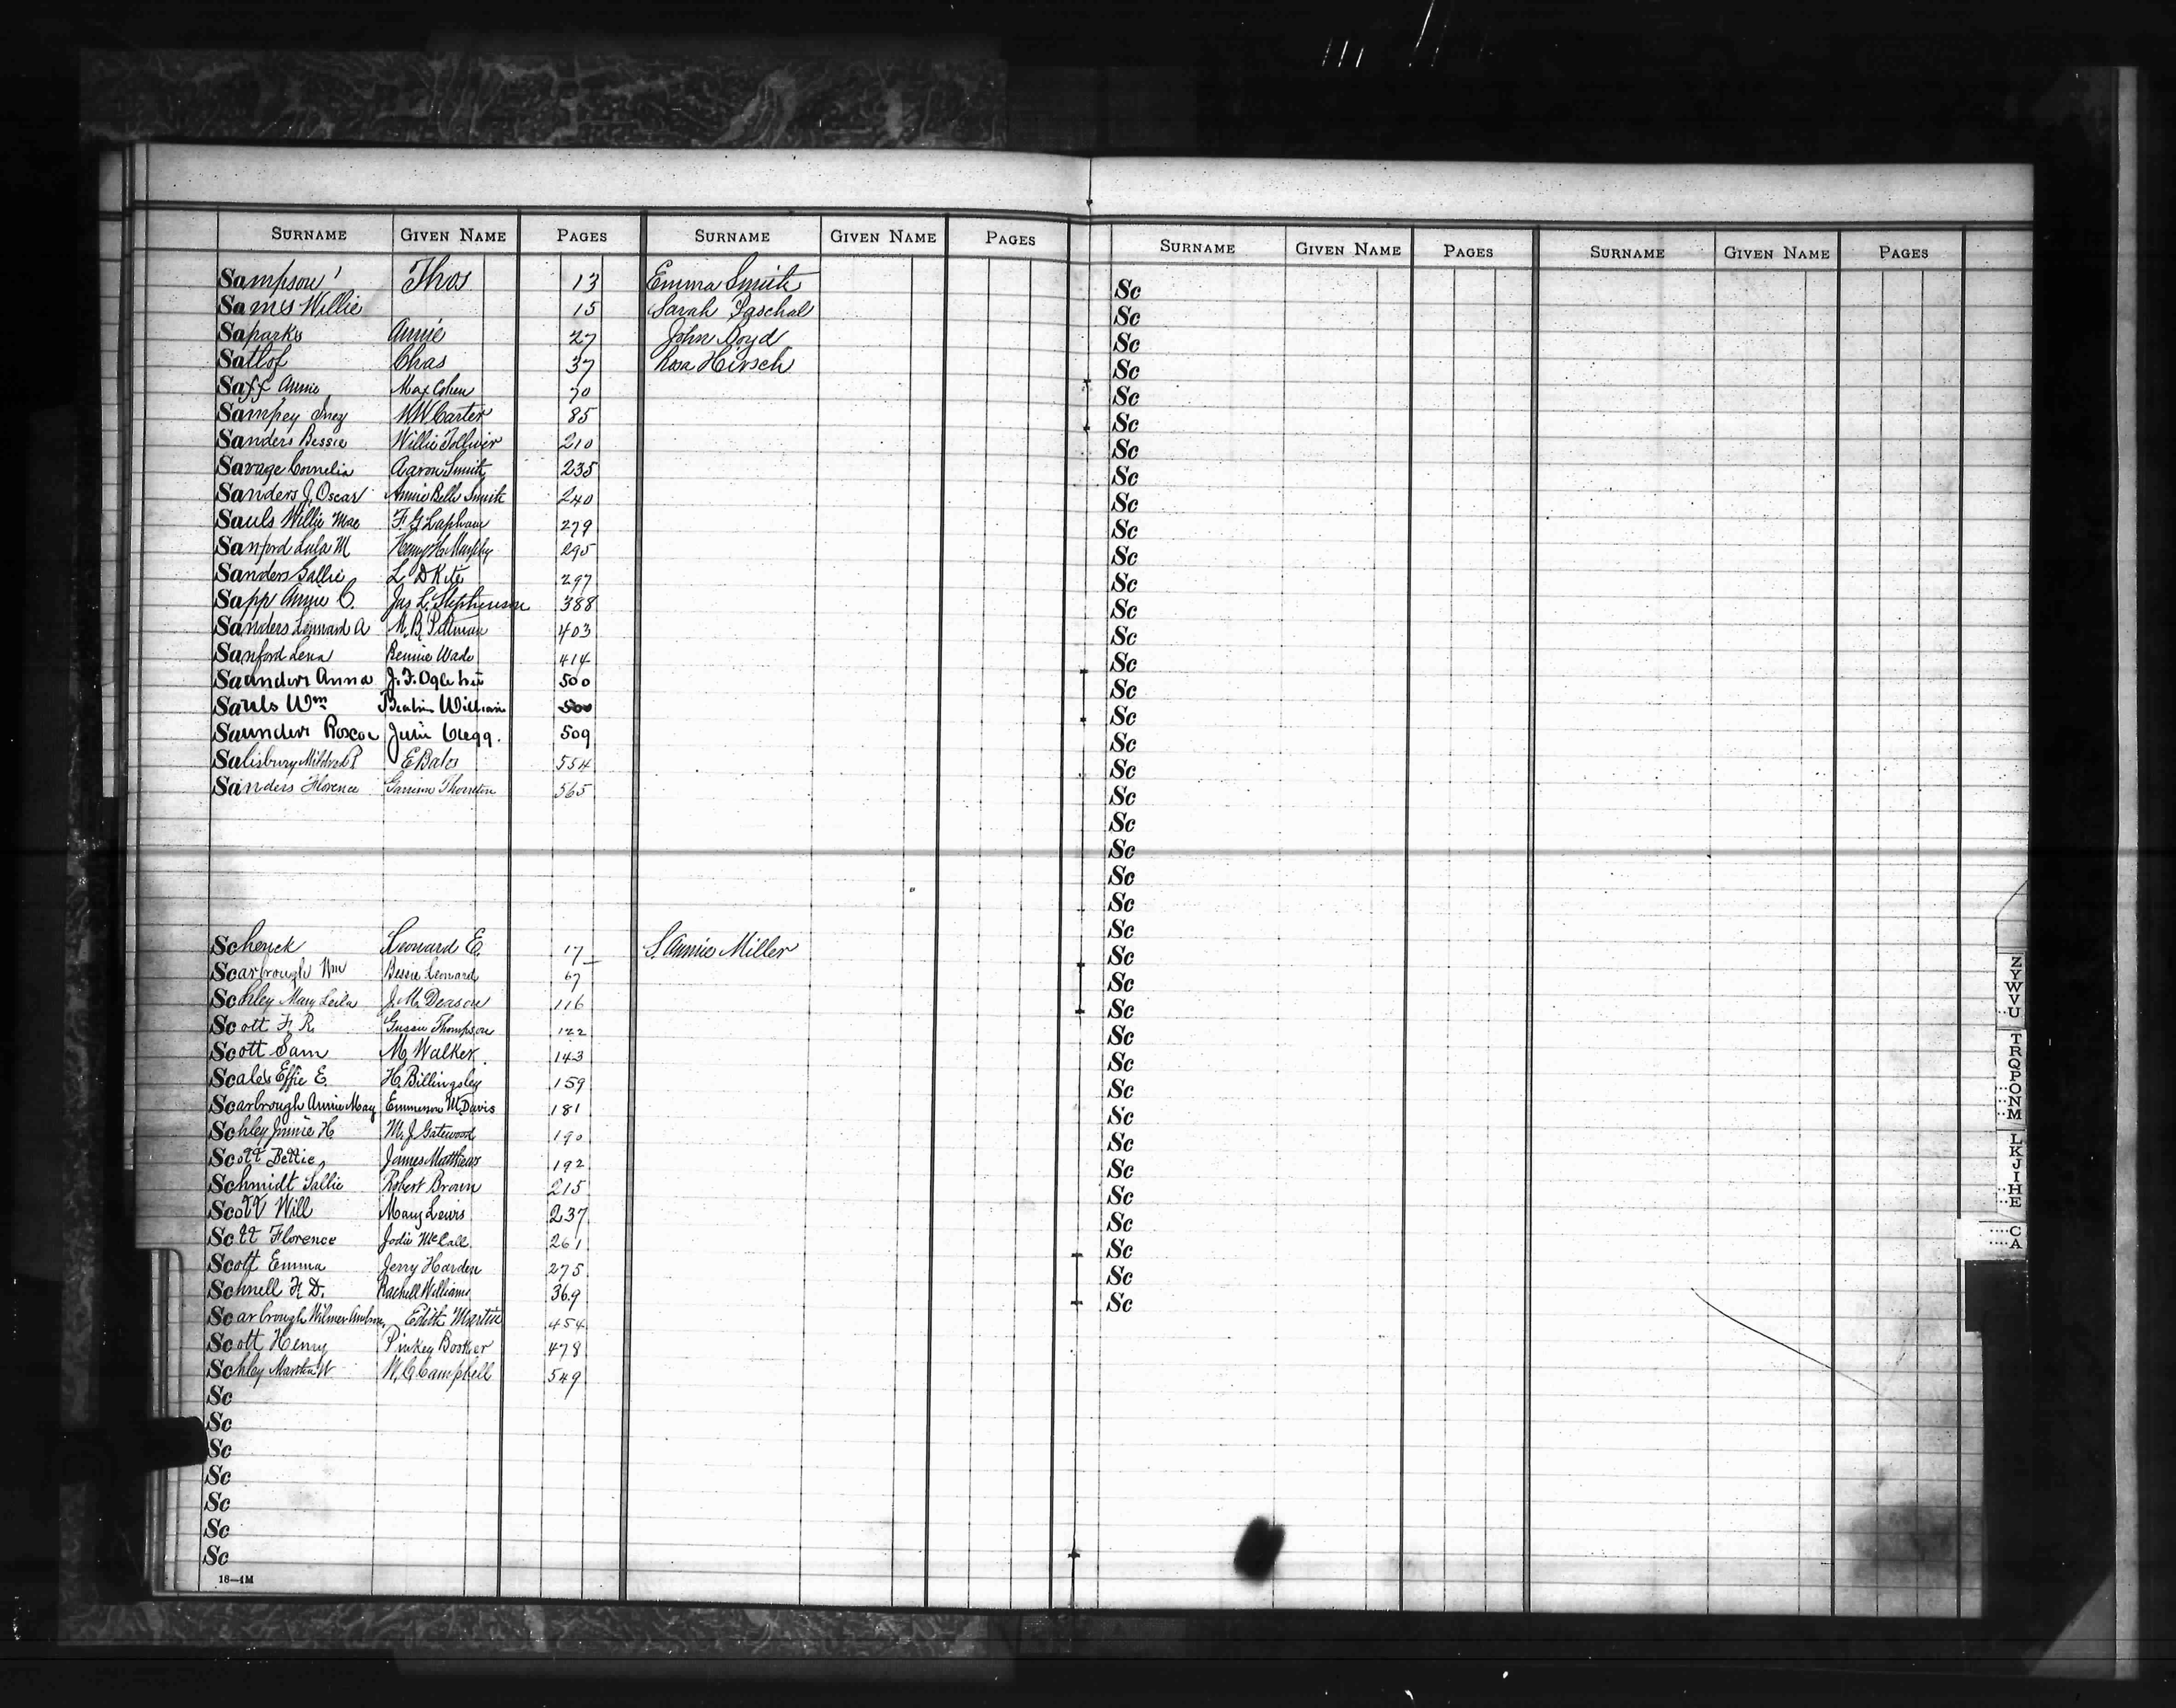 SURNAME GIVEN NAME PAGES SURNAME GIVEN NAME PAGES
Sampson Thos 13 Emma Smith
Sams Willie 15 Sarah Paschal
Saparks Annie 27 John Boyd
Satlof Chas 37 Rosa Hirsch
Saff Annie Max Cohen 70
Sampey Inez W W Carter 85
Sanders Bessie Willie Tolliver 210
Savage Cornelia Aaron Smith 235
Sanders J. Oscar Annie Belle Smith 240
Sauls Willie Mae F. G. Lapham 279
Sanford Lula M Henry H. Murphy 295
Sanders Sallie L D Kite 297
Sapp Annie C. Jas L. Stephenson 388
Sanders Leonard A M. B. Pittman 403
Sanford Lena Bennie Wade 414
Saunders Anna J. T. Ogletree 500
Sauls Wm William 500
Saunders Roscoe Julia Gregg. 509
Salisbury Mildred P E Bates 554
Sanders Florence Garrison Thornton 565
Schenck Leonard E. 17 S. Annie Miller
Scarbrough Wm Bessie Leonard 67
Schley Mary Leila J. M. Deason 116
Scott F. R. Gussie Thompson 122
Scott Sam M. Walker. 143
Scales Effie E. H. Billingsley 159
Scarbrough Annie May Emmerson M. Davis 181
Schley Jimmie H M. J. Gatewood 190
Scott Bettie, James Matthews 192
Schmidt Sallie Robert Brown 215
Scott Will Mary Lewis 237
Scott Florence Jodie McCall. 261
Scott Emma Jerry Harden 275
Schnell F. D. Rachell Williams 369
Scarbrough Wilmer Edith Martin 454
Scott Henry Pinkey Booker 478
Schley Martha W W. C. Campbell 549
Sc
Sc
Sc
Sc
Sc
Sc
Sc
18—1M
SURNAME GIVEN NAME PAGES SURNAME GIVEN NAME PAGES
Sc
Sc
Sc
Sc
Sc
Sc
Sc
Sc
Sc
Sc
Sc
Sc
Sc
Sc
Sc
Sc
Sc
Sc
Sc
Sc
Sc
Sc
Sc
Sc
Sc
Sc
Sc
Sc
Sc
Sc
Sc
Sc
Sc
Sc
Sc
Sc
Sc
Sc
Sc
Z
Y
W
V
U
T
R
Q
P
O
N
M
L
K
J
I
H
E
C
A